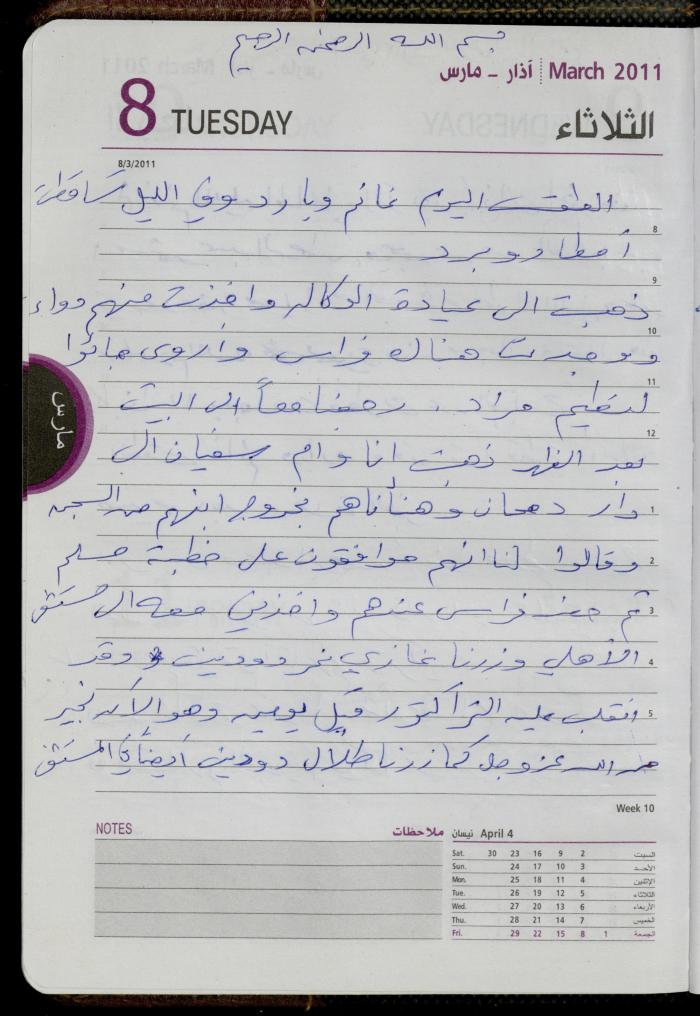 بسم الله الرحمن الرحيم
March 2011 آذار - مارس
8 TUESDAY الثلاثاء
8/3/2011
الطقس اليوم غائم وبارد وفي الليل تساقطت
8
أمطار وبرد
9
ذهبت الى عيادة الوكاله واخذت منهم دواء
10
ووجدت هناك فراس وأروى جائوا
11
لتطعيم مراد. رجعنا معاً الى البيت
12
بعد الظهر ذهبت انا وام سفيان الى
دار دهمان وهنأناهم بخروج ابنهم من السجن
1
وقالوا لنا انهم موافقون على خطبة مسلم
2
ثم جئت فراس عندهم واخذني معه الى مستشفى
3
الأهلي وزرنا غازي نمر دودين وقد
4
انقلب عليه التراكتور قبل يومين وهو الآن بخير
5
من الله عز وجل كما زرنا طلال دودين أيضاً في المستشفى
Week 10
NOTES ملاحظات
نيسان April 4
Sat. 30 23 16 9 2 السبت
Sun. 24 17 10 3 الأحد
Mon. 25 18 11 4 الإثنين
Tue. 26 19 12 5 الثلاثاء
Wed. 27 20 13 6 الأربعاء
Thu. 28 21 14 7 الخميس
Fri. 29 22 15 8 1 الجمعة
مارس